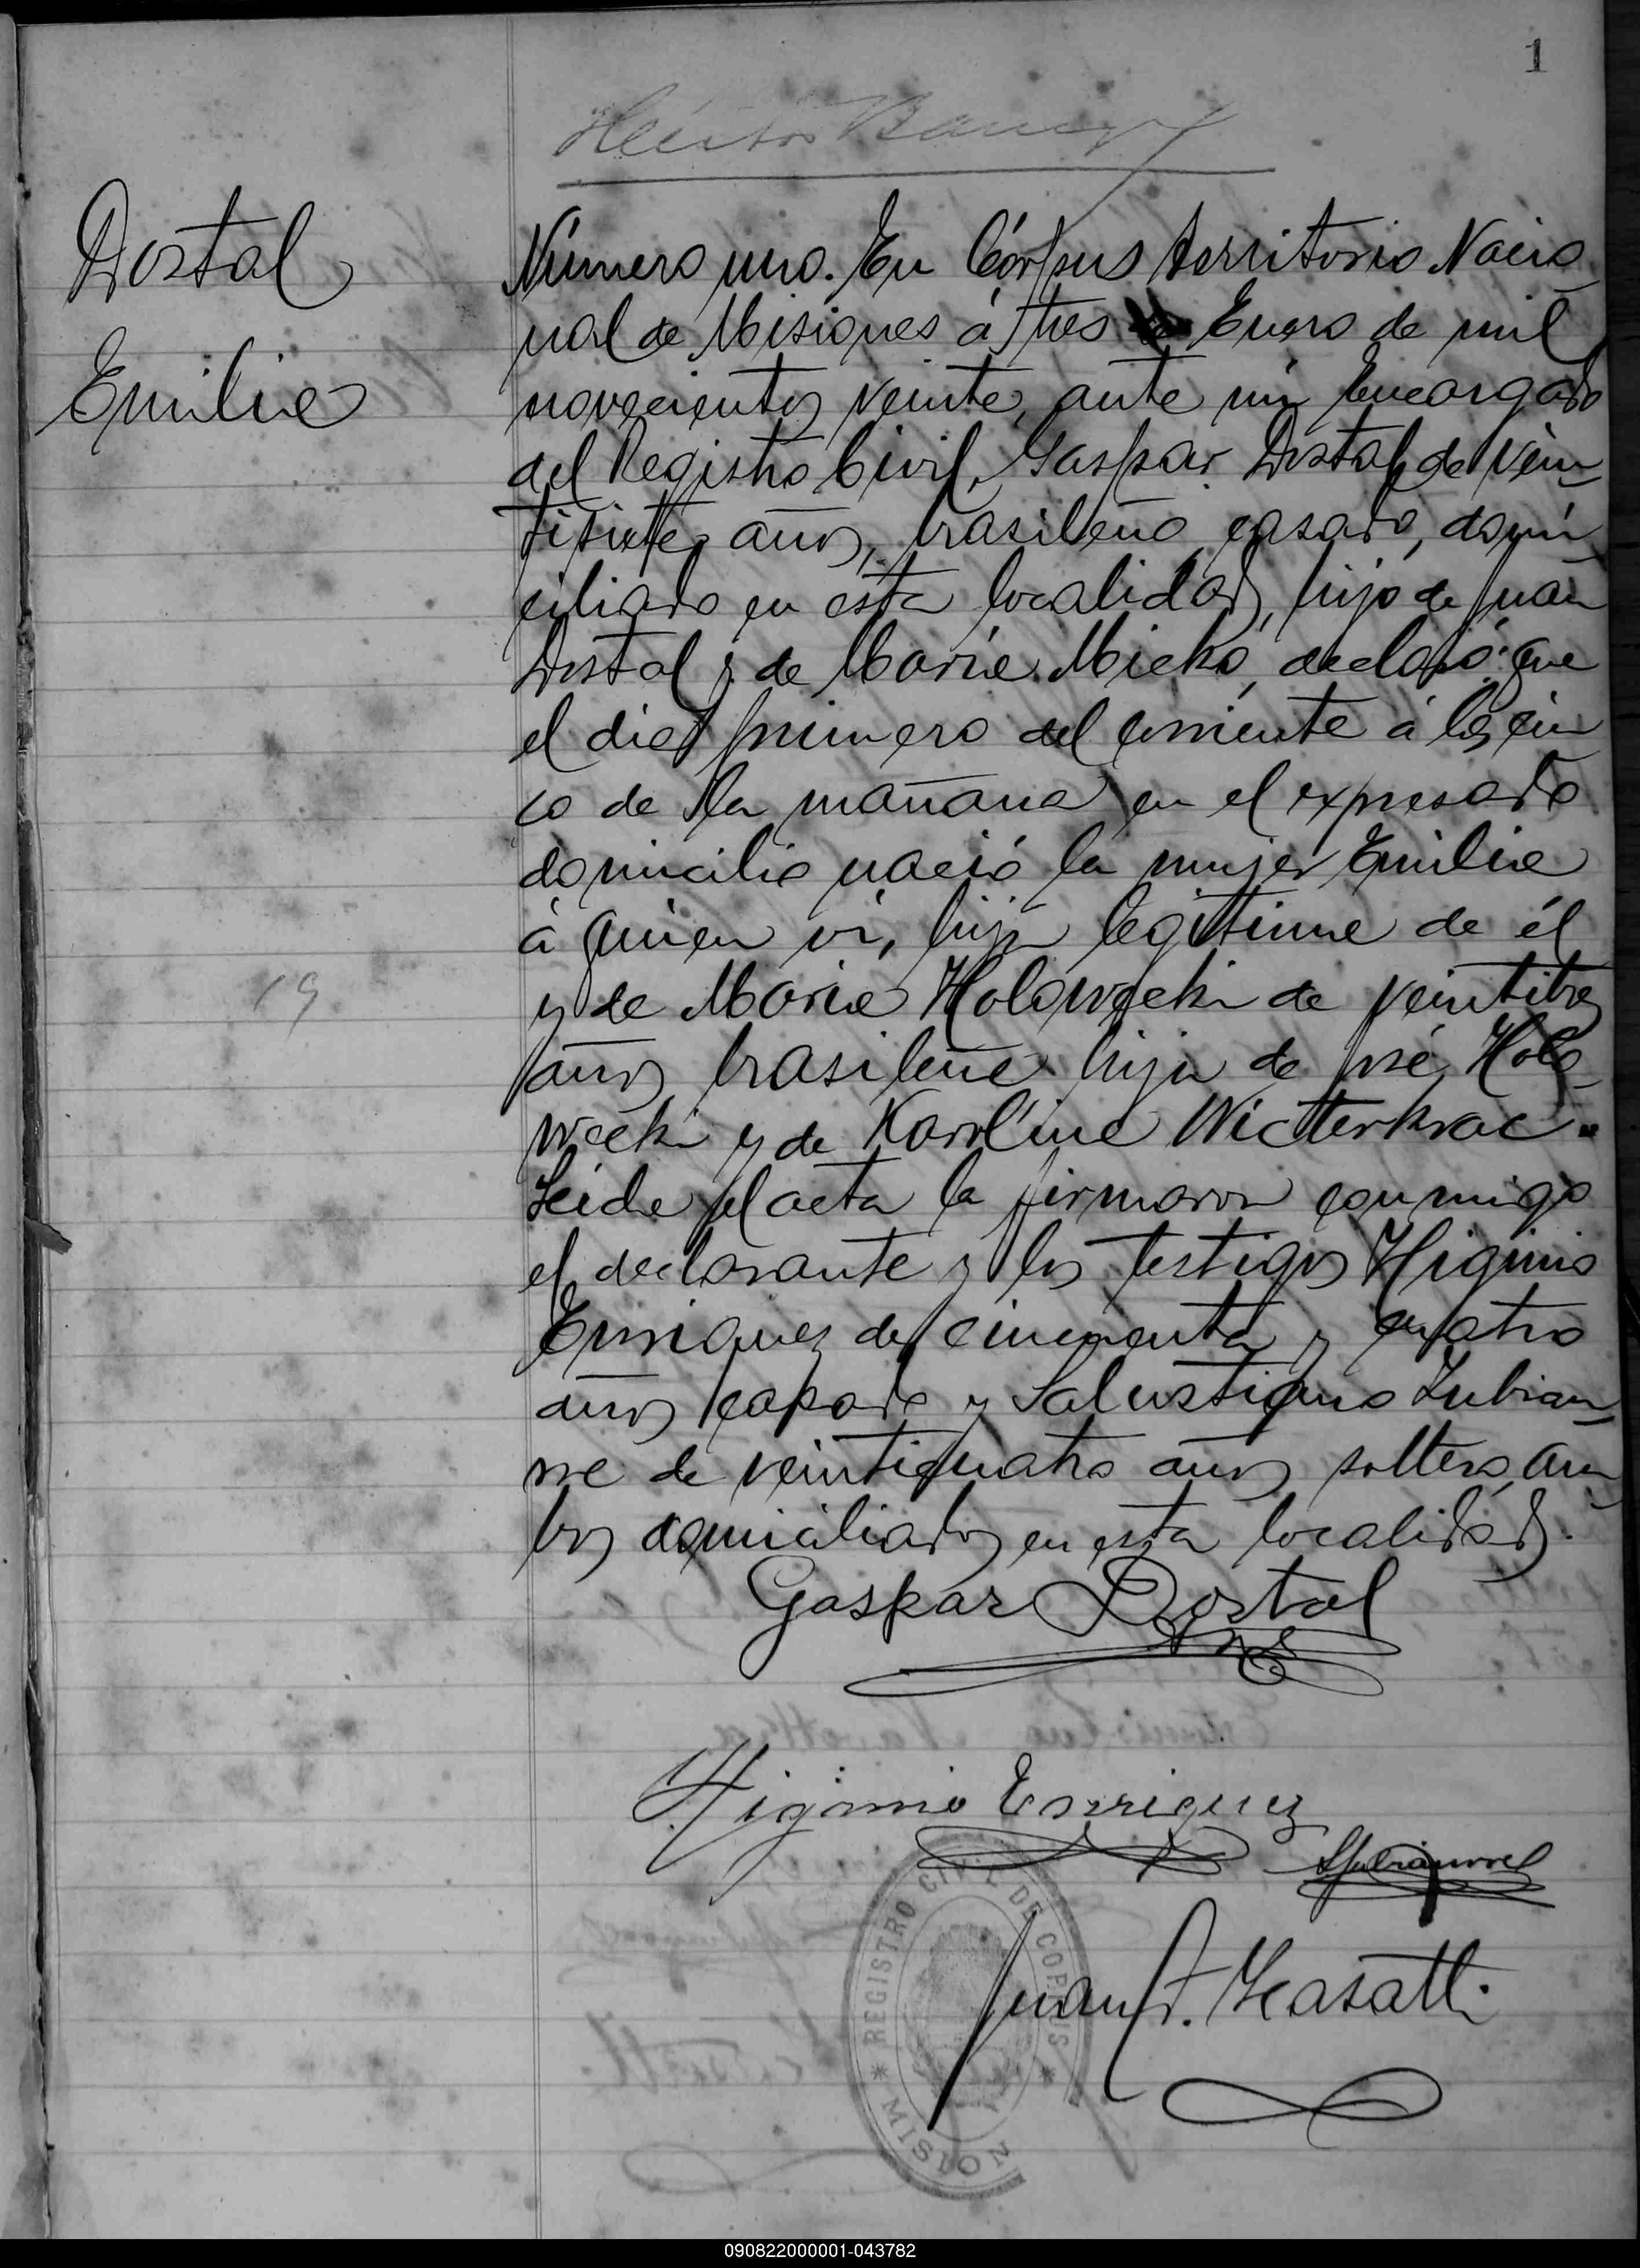 1
Dostal
Emilia
Número uno. En Córpus territorio Nacio
nal de Misiones á tres Enero de mil
novecientos veinte, ante mí Encargado
del Registro Civil, Gaspar Dostal, de vein
tisiete años, brasileño, casado, domi
ciliado en esta localidad, hijo de Juan
Dostal y de María Micko, declaró: que
el dia primero del corriente á las cin
co de la mañana en el expresado
domicilio nació la mujer Emilia
á quien ví, hija legítima de él
y de María Holowecki de veintitres
años brasileña hija de José Holo
wecki y de Karolina Wicterkrac.
Leida el acta la firmaron conmigo
el declarante y los testigos Higinio
Enriquez de cincuenta y cuatro
años casado y Salustiano Lubian
rre de veinticuatro años soltero, am
bos domiciliados en esta localidad.
19
Gaspar Dostal
Higinio Enriquez
Juan F. Casatti
REGISTRO CIVIL DE CORPUS
MISION
090822000001-043782